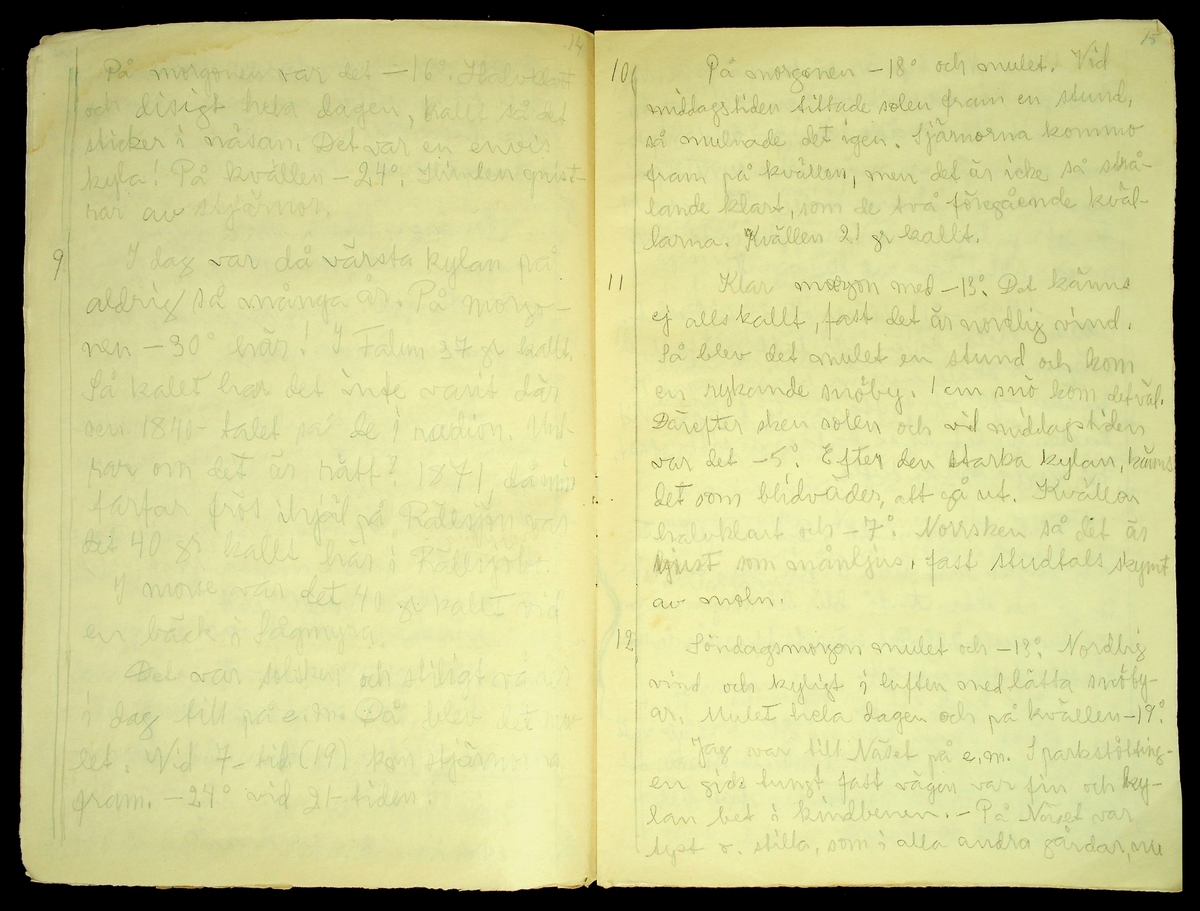 14
På morgonen var det -16°. Halvklart
och disigt hela dagen, kallt så det
sticker i näsan. Det var en envis
kyla! På kvällen -24°. Himlen gnist-
rar av stjärnor.
9 I dag var då värsta kylan på
aldrig så många år. På morgo-
nen -30° här! I Falun 37 gr kallt.
Så kallt har det inte varit där
sen 1840-talet sa de i radion. Und-
rar om det är rätt? 1871, då min
farfar frös ihjäl på Rällsjön var
det 40 gr kallt här i Rällsjöbo.
I morse var det 40 gr kallt vid
en bäck i Sågmyra.
Det var solsken och stiligt
i dag till på e.m. Då blev det mu-
let. Vid 7-tid (19) kom stjärnorna
fram. -24° vid 21-tiden.
15
10 På morgonen -18° och mulet. Vid
middagstiden tittade solen fram en stund,
så mulnade det igen. Sjärnorna kommo
fram på kvällen, men det är icke så strå-
lande klart, som de två föregående kväl-
larna. Kvällen 21 gr kallt.
11 Klar morgon med -13°. Det känns
ej alls kallt, fast det är nordlig vind.
Så blev det mulet en stund och kom
en rykande snöby. 1 cm snö kom det väl.
Därefter sken solen och vid middagstiden
var det -5°. Efter den starka kylan, känns
det som blidväder, att gå ut. Kvällen
halvklart och -7°. Norrsken så det är
ljust som månljus, fast studtals skymt
av moln.
12 Söndagsmorgon mulet och -13°. Nordlig
vind och kyligt i luften med lätta snöby-
ar. Mulet hela dagen och på kvällen -19°.
Jag var till Näset på e.m. Sparkstötting-
en gick tungt fast vägen var fin och ky-
lan bet i kindbenen. - På Näset var
tyst o. stilla, som i alla andra gårdar, nu